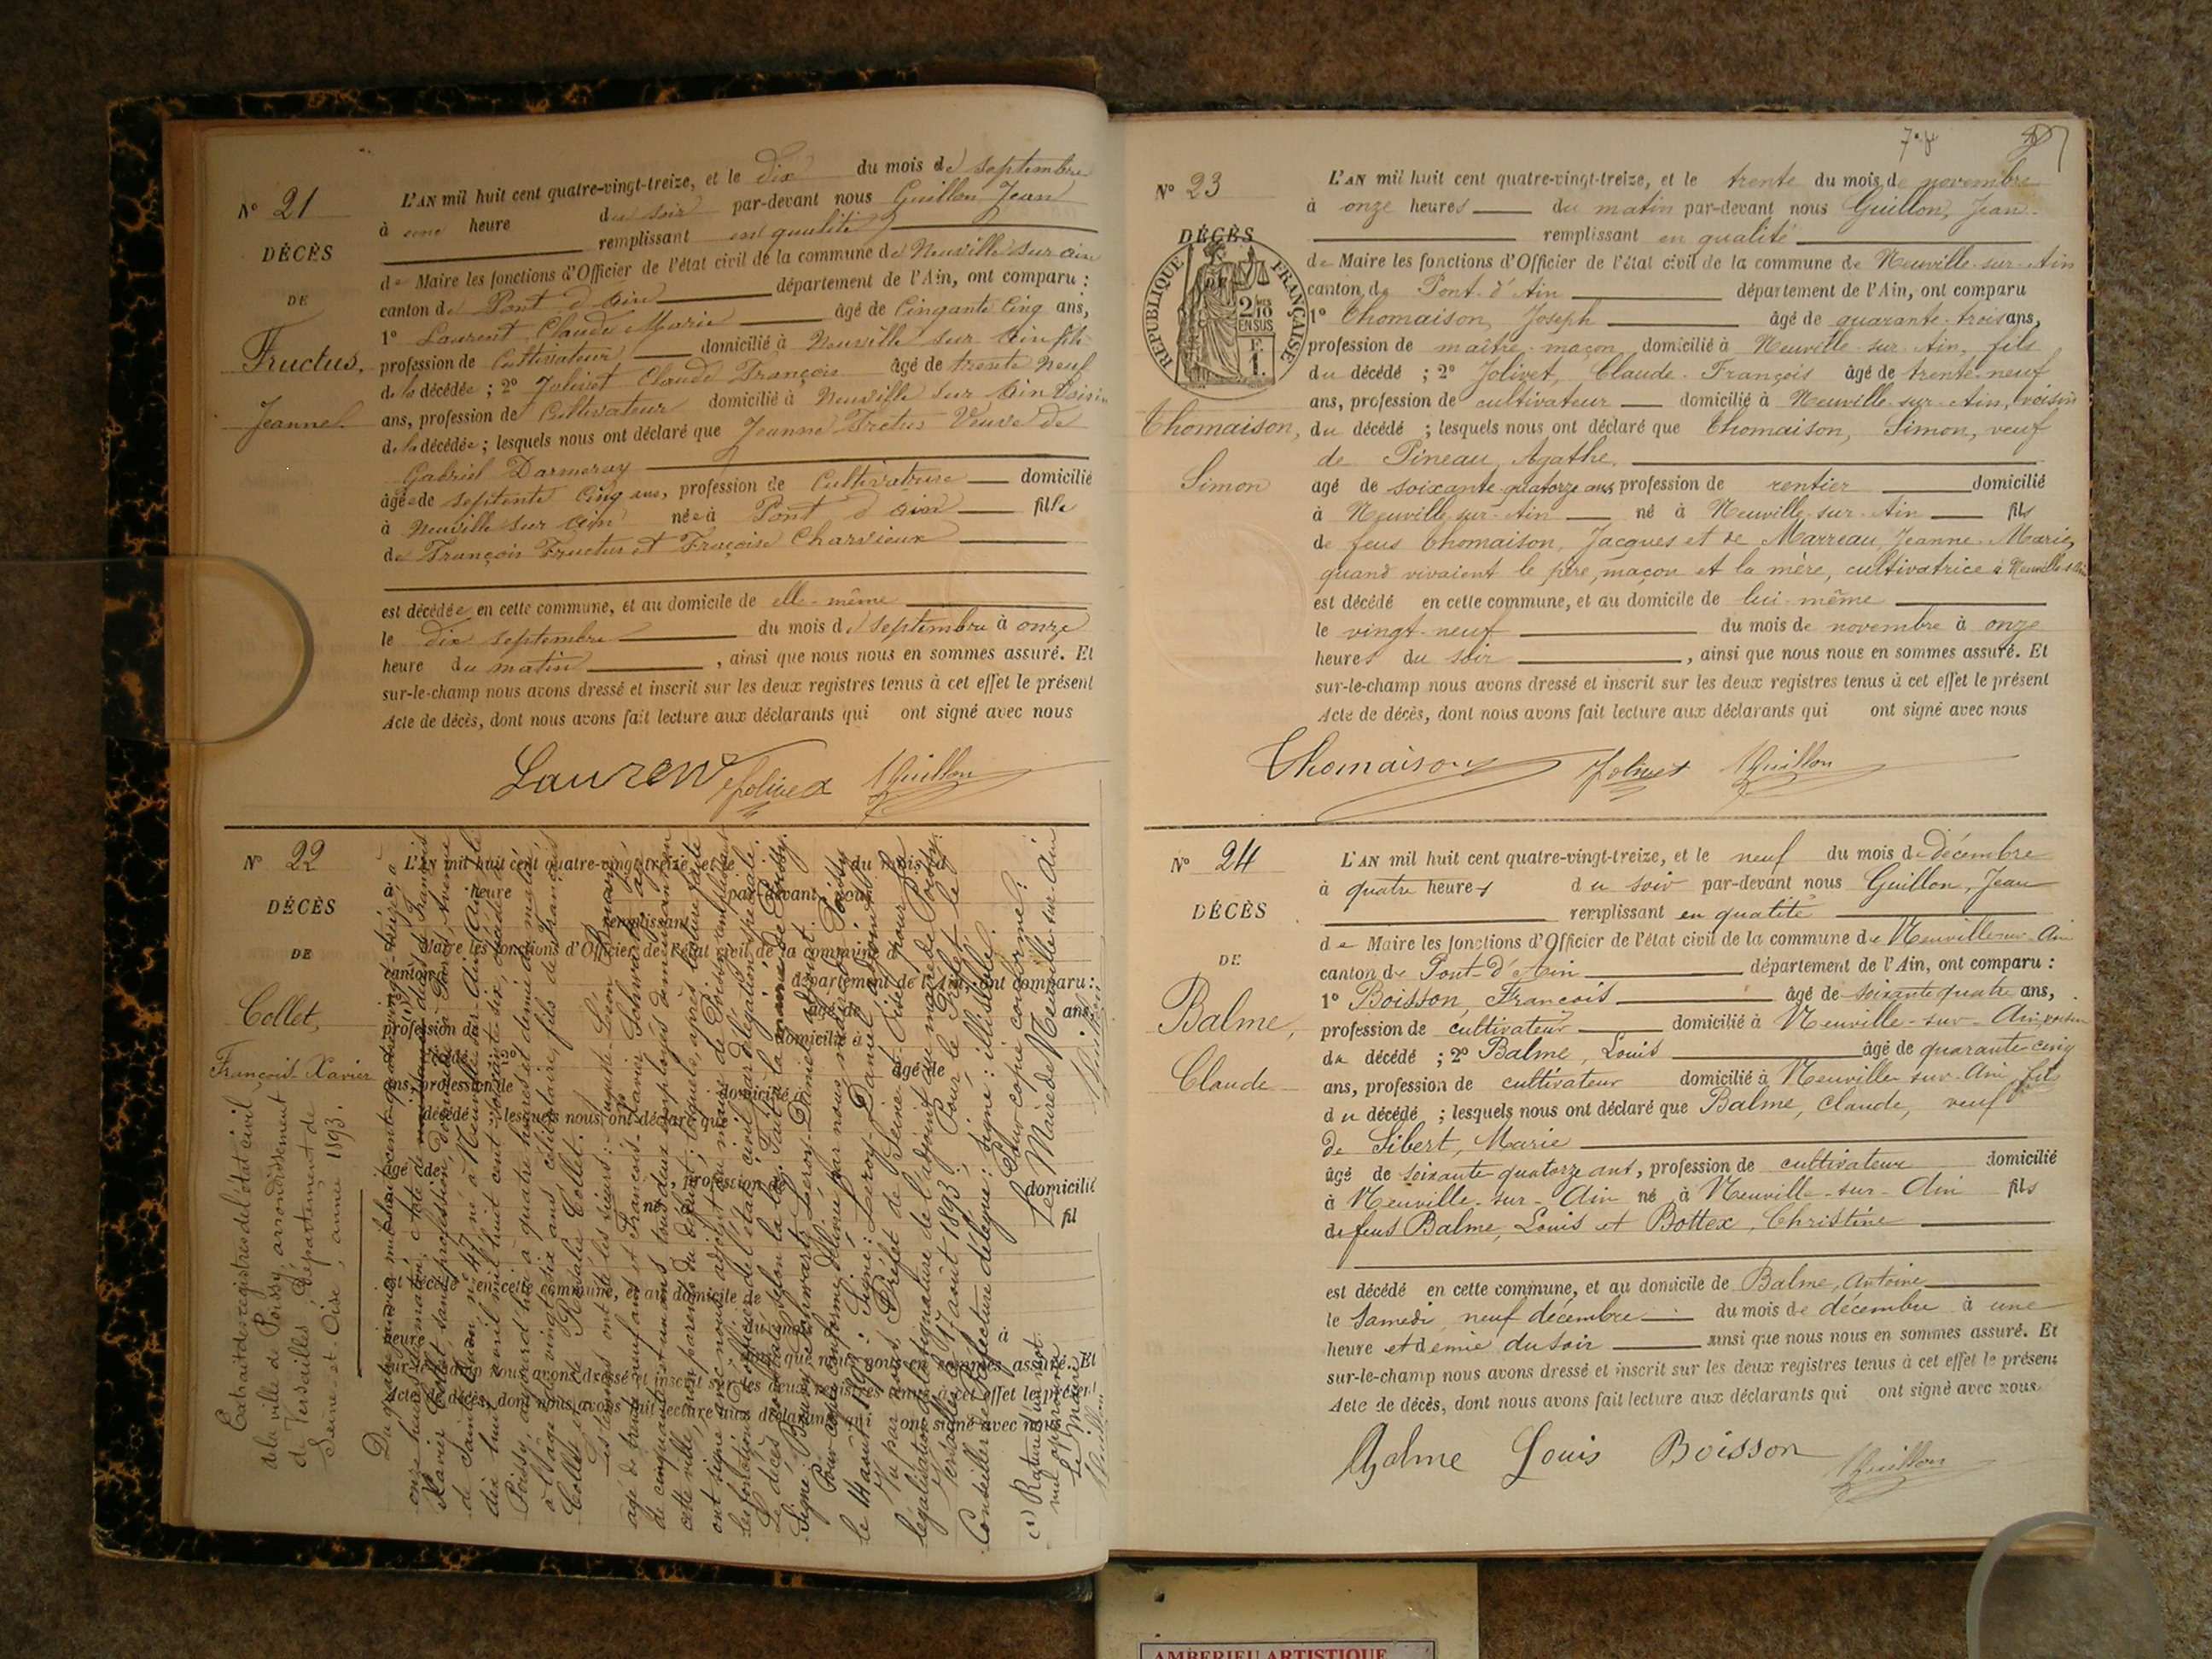 N° 21
DÉCÈS
DE
Fructus,
Jeanne
L'AN mil huit cent quatre-vingt-treize, et le dix du mois de septembre
à une heure du soir par-devant nous Guillon Jean
remplissant en qualité
de Maire les fonctions d'Officier de l'état civil de la commune de Neuville sur ain
canton de Pont d'ain département de l'Ain, ont comparu :
1° Laurent Claude Marie âgé de Cinquante Cinq ans,
profession de Cultivateur domicilié à Neuville sur ain fils
de la décédée ; 2° Jolivet Claude François âgé de trente neuf
ans, profession de Cultivateur domicilié à Neuville sur ain Voisin
de la décédée ; lesquels nous ont déclaré que Jeanne Fretus Veuve de
Gabriel Darmeray
âgée de septente Cinq ans, profession de Cultivatrice domicilié
à Neuville sur ain née à Pont d'ain fille
de François Fructus et Françoise Charvieux
est décédée en cette commune, et au domicile de elle-même
le dix septembre du mois de septembre à onze
heure du matin , ainsi que nous nous en sommes assuré. Et
sur-le-champ nous avons dressé et inscrit sur les deux registres tenus à cet effet le présent
Acte de décès, dont nous avons fait lecture aux déclarants qui ont signé avec nous
Laurent Jolivet Guillon
N° 22
DÉCÈS
DE
Collet,
François Xavier
Extrait des registres de l'état civil
de la ville de Poissy, arrondissement
de Versailles, département de
Seine-et-Oise, année 1893.
L'AN mil huit cent quatre-vingt-treize, et le du mois d
à heure par-devant nous
remplissant
Maire les fonctions d'Officier de l'état civil de la commune d
canton d département de l'Ain, ont comparu :
âgé de ans,
profession de domicilié à
décédé ; 2° âgé de
ans, profession de domicilié à
décédé ; lesquels nous ont déclaré que
âgé de , profession de domicilié
né fil
est décédé en cette commune, et au domicile de
du mois d à
heure ainsi que nous nous en sommes assuré. Et
sur-le-champ nous avons dressé et inscrit sur les deux registres tenus à cet effet le présent
Acte de décès, dont nous avons fait lecture aux déclarants qui ont signé avec nous
onze heures du matin, acte de décès de François
Xavier Collet, sans profession, domicilié à Poissy
né à Neuville sur Ain
Poissy, aujourd'hui à quatre heures et demie du matin,
à l'âge de vingt six ans, célibataire, fils de François
Collet et de Rosalie Collet.
Les témoins ont été les sieurs :
âgé de trente neuf ans et François-Xavier Schwartz, âgé
de cinquante et un ans, tous deux employés demeurant en
cette ville, non parents du défunt ; lesquels, après lecture faite
ont signé avec nous, adjoint au maire de Poissy remplissant
les fonctions d'officier de l'état civil par délégation spéciale.
Le décès constaté selon la loi. Fait à la mairie de Poissy.
Pour copie conforme, délivrée par nous maire de Poissy
le 14 août 1893. Signé : Leroy-Daniel, adjoint
Vu par nous, Préfet de Seine-et-Oise, pour
légalisation de la signature de l'adjoint au maire de Poissy.
Versailles, le 17 août 1893. Pour le Préfet, le
Conseiller de Préfecture délégué : signé : illisible.
Pour copie conforme :
Le Maire de Neuville-sur-Ain
Guillon
(1) Rature d'un mot
nul approuvée
Le Maire
Guillon
N° 23
DÉCÈS
DE
RÉPUBLIQUE FRANÇAISE
2/10 EN SUS
F. 1.
Thomaison,
Simon
L'AN mil huit cent quatre-vingt-treize, et le trente du mois de novembre
à onze heures du matin par-devant nous Guillon, Jean
remplissant en qualité
de Maire les fonctions d'Officier de l'état civil de la commune de Neuville-sur-Ain
canton de Pont-d'Ain département de l'Ain, ont comparu
1° Thomaison, Joseph âgé de quarante-trois ans,
profession de maître-maçon domicilié à Neuville-sur-Ain, fils
du décédé ; 2° Jolivet, Claude-François âgé de trente-neuf
ans, profession de cultivateur domicilié à Neuville-sur-Ain, voisin
du décédé ; lesquels nous ont déclaré que Thomaison, Simon, veuf
de Pineau, Agathe,
agé de soixante-quatorze ans profession de rentier domicilié
à Neuville-sur-Ain né à Neuville-sur-Ain fils
de feus Thomaison, Jacques et de Marreau, Jeanne-Marie,
quand vivaient le père, maçon et la mère, cultivatrice à Neuville-s-Ain
est décédé en cette commune, et au domicile de lui-même
le vingt-neuf du mois de novembre à onze
heures du soir , ainsi que nous nous en sommes assuré. Et
sur-le-champ nous avons dressé et inscrit sur les deux registres tenus à cet effet le présent
Acte de décès, dont nous avons fait lecture aux déclarants qui ont signé avec nous
Thomaison Jolivet Guillon
N° 24
DÉCÈS
DE
Balme,
Claude
L'AN mil huit cent quatre-vingt-treize, et le neuf du mois de décembre
à quatre heures du soir par-devant nous Guillon, Jean
remplissant en qualité
de Maire les fonctions d'Officier de l'état civil de la commune de Neuville sur-Ain
canton de Pont-d'Ain département de l'Ain, ont comparu :
1° Boisson, François âgé de soixante quatre ans,
profession de cultivateur domicilié à Neuville-sur-Ain, voisin
du décédé ; 2° Balme, Louis âgé de quarante-cinq
ans, profession de cultivateur domicilié à Neuville-sur-Ain, fils
du décédé ; lesquels nous ont déclaré que Balme, Claude, veuf
de Sibert, Marie
âgé de soixante-quatorze ans, profession de cultivateur domicilié
à Neuville-sur-Ain né à Neuville-sur-Ain fils
de feus Balme, Louis et Bottex, Christine
est décédé en cette commune, et au domicile de Balme, Antoine
le Samedi neuf décembre du mois de décembre à une
heure et demie du soir ainsi que nous nous en sommes assuré. Et
sur-le-champ nous avons dressé et inscrit sur les deux registres tenus à cet effet le présent
Acte de décès, dont nous avons fait lecture aux déclarants qui ont signé avec nous
Balme Louis Boisson Guillon
AMBERIEU ARTISTIQUE